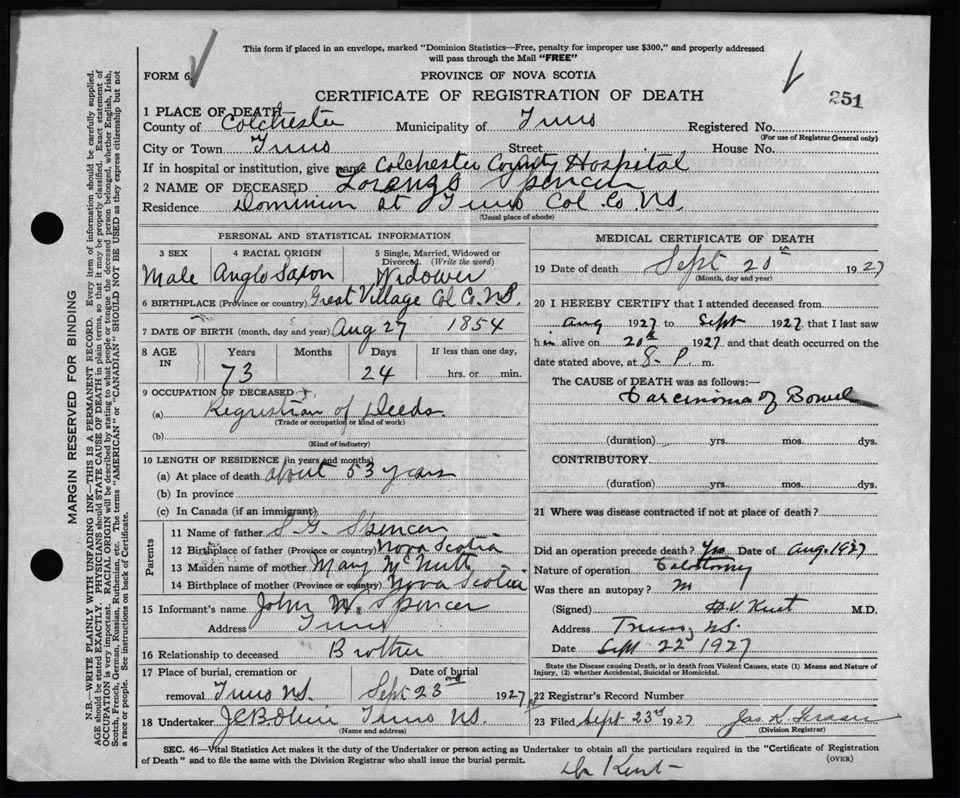 This form if placed in an envelope, marked "Dominion Statistics—Free, penalty for improper use $300," and properly addressed
will pass through the Mail "FREE"
FORM 6.
PROVINCE OF NOVA SCOTIA
CERTIFICATE OF REGISTRATION OF DEATH
251
1 PLACE OF DEATH
County of Colchester Municipality of Truro Registered No.
(For use of Registrar General only)
City or Town Truro Street House No.
If in hospital or institution, give name Colchester County Hospital
2 NAME OF DECEASED Lorenzo Spencer
Residence Dominion at Truro Col. Co. N.S.
(Usual place of abode)
PERSONAL AND STATISTICAL INFORMATION
3 SEX 4 RACIAL ORIGIN 5 Single, Married, Widowed or
Divorced. (Write the word)
Male Anglo Saxon Widower
6 BIRTHPLACE (Province or country) Great Village Col. Co. N.S.
7 DATE OF BIRTH (month, day and year) Aug 27 1854
8 AGE IN Years Months Days If less than one day,
73 24 hrs. or min.
9 OCCUPATION OF DECEASED
(a) of Deeds
(Trade or occupation or kind of work)
(b)
(Kind of industry)
10 LENGTH OF RESIDENCE (in years and months)
(a) At place of death about 53 years
(b) In province
(c) In Canada (if an immigrant)
Parents
11 Name of father S. G. Spencer
12 Birthplace of father (Province or country) Nova Scotia
13 Maiden name of mother Mary McNutt
14 Birthplace of mother (Province or country) Nova Scotia
15 Informant's name John W. Spencer
Address Truro
16 Relationship to deceased Brother
17 Place of burial, cremation or Date of burial
removal Truro N.S. Sept 23rd 1927
18 Undertaker Truro N.S.
(Name and address)
MEDICAL CERTIFICATE OF DEATH
19 Date of death Sept 20th 1927
(Month, day and year)
20 I HEREBY CERTIFY that I attended deceased from
Aug 1927 to Sept 1927 that I last saw
him alive on 20th 1927 and that death occurred on the
date stated above, at 8 P m.
The CAUSE OF DEATH was as follows:—
Carcinoma of Bowel
(duration) yrs. mos. dys.
CONTRIBUTORY
(duration) yrs. mos. dys.
21 Where was disease contracted if not at place of death?
Did an operation precede death? Yes Date of Aug. 1927
Nature of operation
Was there an autopsy?
(Signed) H.V. Kent M.D.
Address Truro, N.S.
Date Sept 22 1927
State the Disease causing Death, or in death from Violent Causes, state (1) Means and Nature of
Injury, (2) whether Accidental, Suicidal or Homicidal.
22 Registrar's Record Number
23 Filed Sept 23rd 1927 Jas. K. Fraser
(Division Registrar)
SEC. 46—Vital Statistics Act makes it the duty of the Undertaker or person acting as Undertaker to obtain all the particulars required in the "Certificate of Registration
of Death" and to file the same with the Division Registrar who shall issue the burial permit.
(OVER)
Dr Kent
MARGIN RESERVED FOR BINDING
N.B.—WRITE PLAINLY WITH UNFADING INK—THIS IS A PERMANENT RECORD. Every item of information should be carefully supplied.
AGE should be stated EXACTLY. PHYSICIANS should STATE CAUSE OF DEATH in plain terms, so that it may be properly classified. Exact statement of
OCCUPATION is very important. RACIAL ORIGIN will be described by stating to what people or tongue the deceased person belonged, whether English, Irish,
Scotch, French, German, Russian, Ruthenian, etc. The terms "AMERICAN" or "CANADIAN" SHOULD NOT BE USED as they express citizenship but not
a race or people. See instructions on back of Certificate.